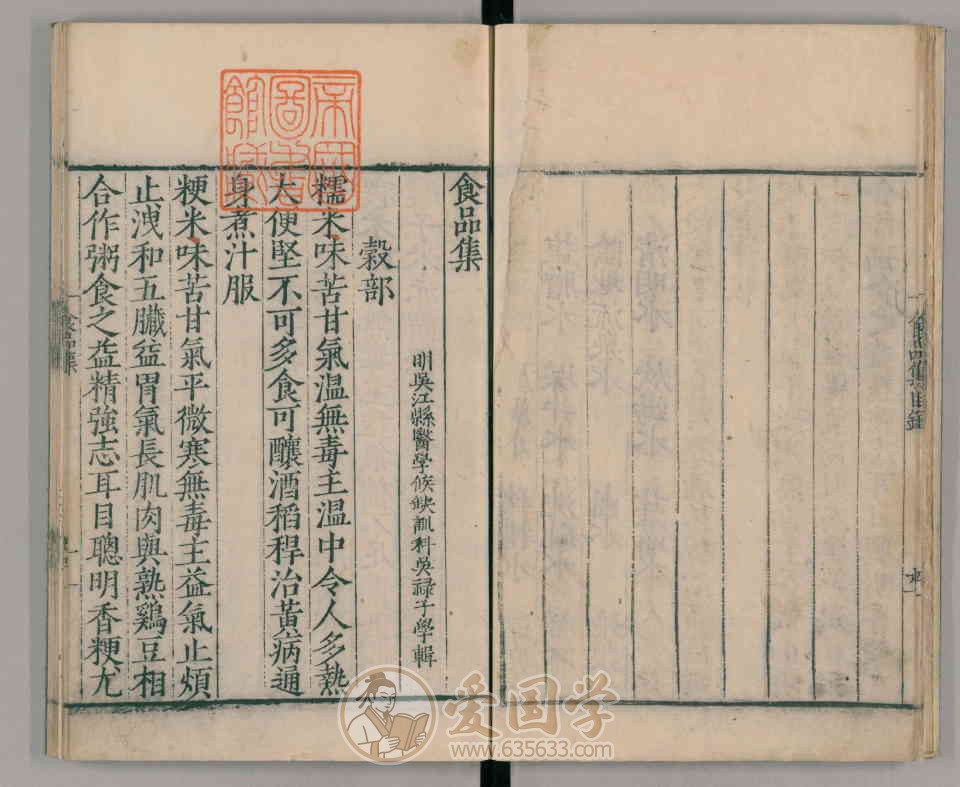 食品集目錄
食品集
明吳江縣醫學候缺訓科吳祿子學輯
穀部
糯米味苦甘氣溫無毒主溫中令人多熱
大便堅不可多食可釀酒稻稈治黃病通
身煮汁服
粳米味苦甘氣平微寒無毒主益氣止煩
止洩和五臟益胃氣長肌肉與熟鷄豆相
合作粥食之益精強志耳目聰明香粳尤
食品集
帝國
圖書
館藏
爱国学
www.635633.com